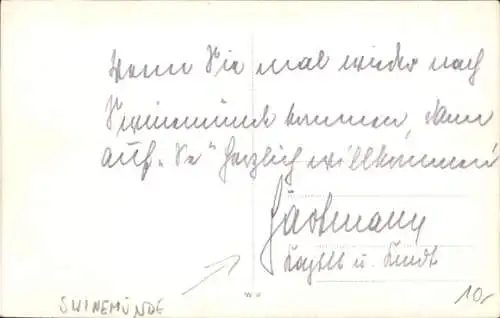 Wenn Sie mal wieder nach
Swinemünde kommen, dann
auf „Se“ herzlich willkommen!
u.
W U
SWINEMÜNDE
10,-